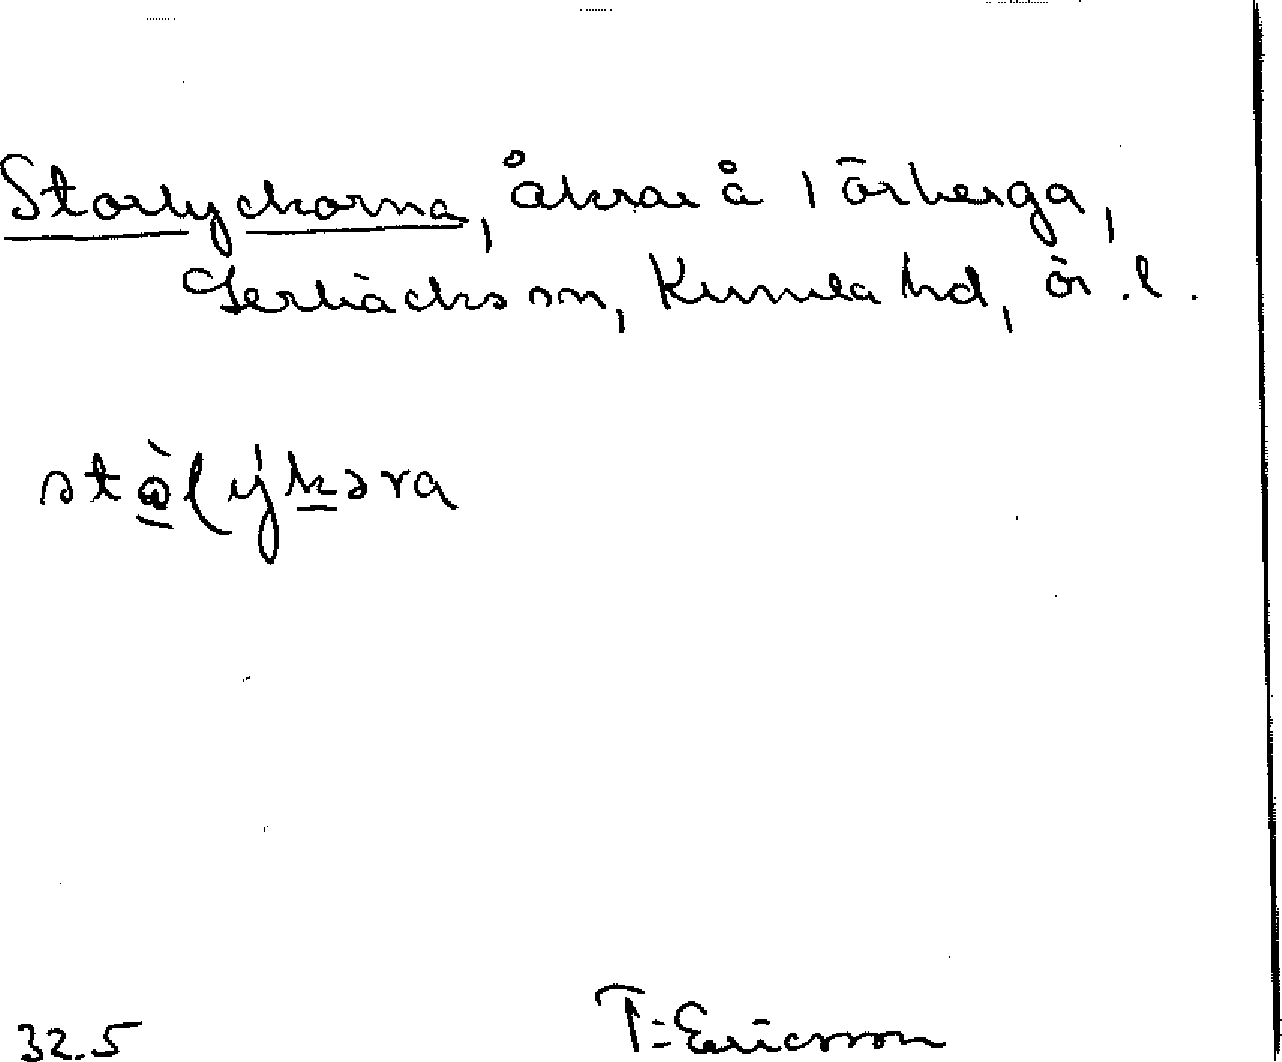 Storlyckorna, åkrar å Törberga,
Lerbäcks sn, Kumla hd, ör. l.
stὼ̲lýk̲əra
32.5 T. Ericsson